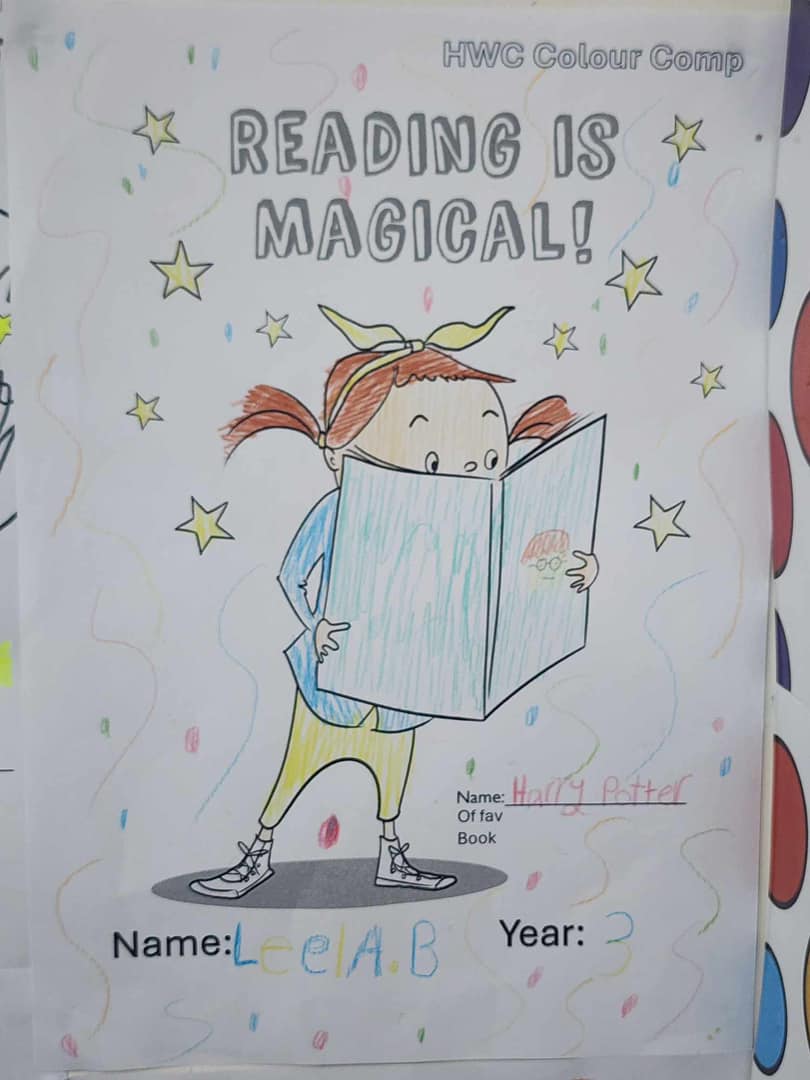 HWC Colour Comp
READING IS
MAGICAL!
Name: Harry Potter
Of fav
Book
Name: LeelA.B Year: 3